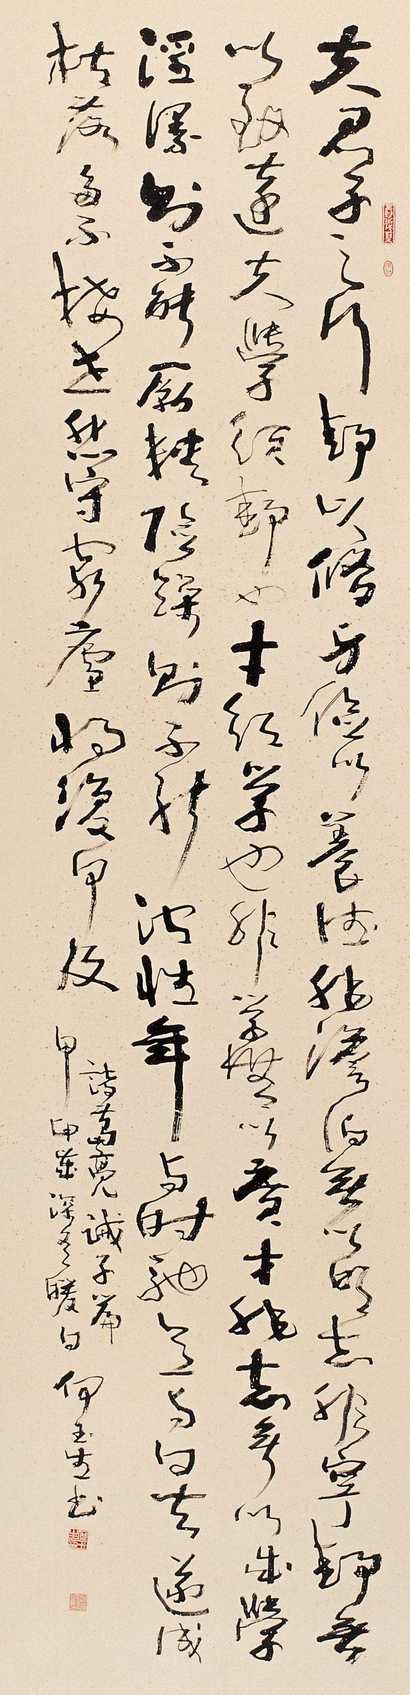 夫君子之行靜以脩身儉以養德非澹泊無以明志非寧靜無
以致遠夫學須靜也才須學也非學無以廣才非志無以成學
淫漫則不能勵精險躁則不能治性年与时馳意与日去遂成
枯落多不接世悲守窮廬將復何及
諸葛亮誡子篇
甲申歲深冬暖日